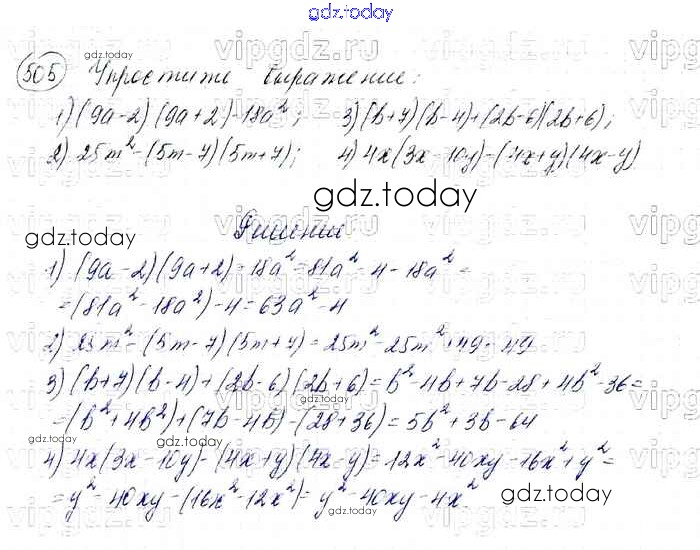 gdz.today
505 Упростите выражение:
1) (9a-2)(9a+2)-18a²; 3) (b+7)(b-4)+(2b-6)(2b+6);
2) 25m²-(5m-7)(5m+7); 4) 4x(3x-10y)-(4x+y)(4x-y)
gdz.today
gdz.today
Решение
1) (9a-2)(9a+2)-18a²=81a²-4-18a²=
=(81a²-18a²)-4=63a²-4
2) 25m²-(5m-7)(5m+7)=25m²-25m²+49=49
3) (b+7)(b-4)+(2b-6)(2b+6)=b²-4b+7b-28+4b²-36=
=(b²+4b²)+(7b-4b)-(28+36)=5b²+3b-64
4) 4x(3x-10y)-(4x+y)(4x-y)=12x²-40xy-16x²+y²=
=y²-40xy-(16x²-12x²)=y²-40xy-4x²
gdz.today
vipgdz.ru